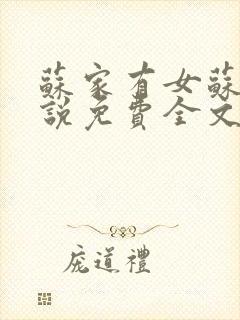 蘇家有女蘇
說免費全文
庞道禮